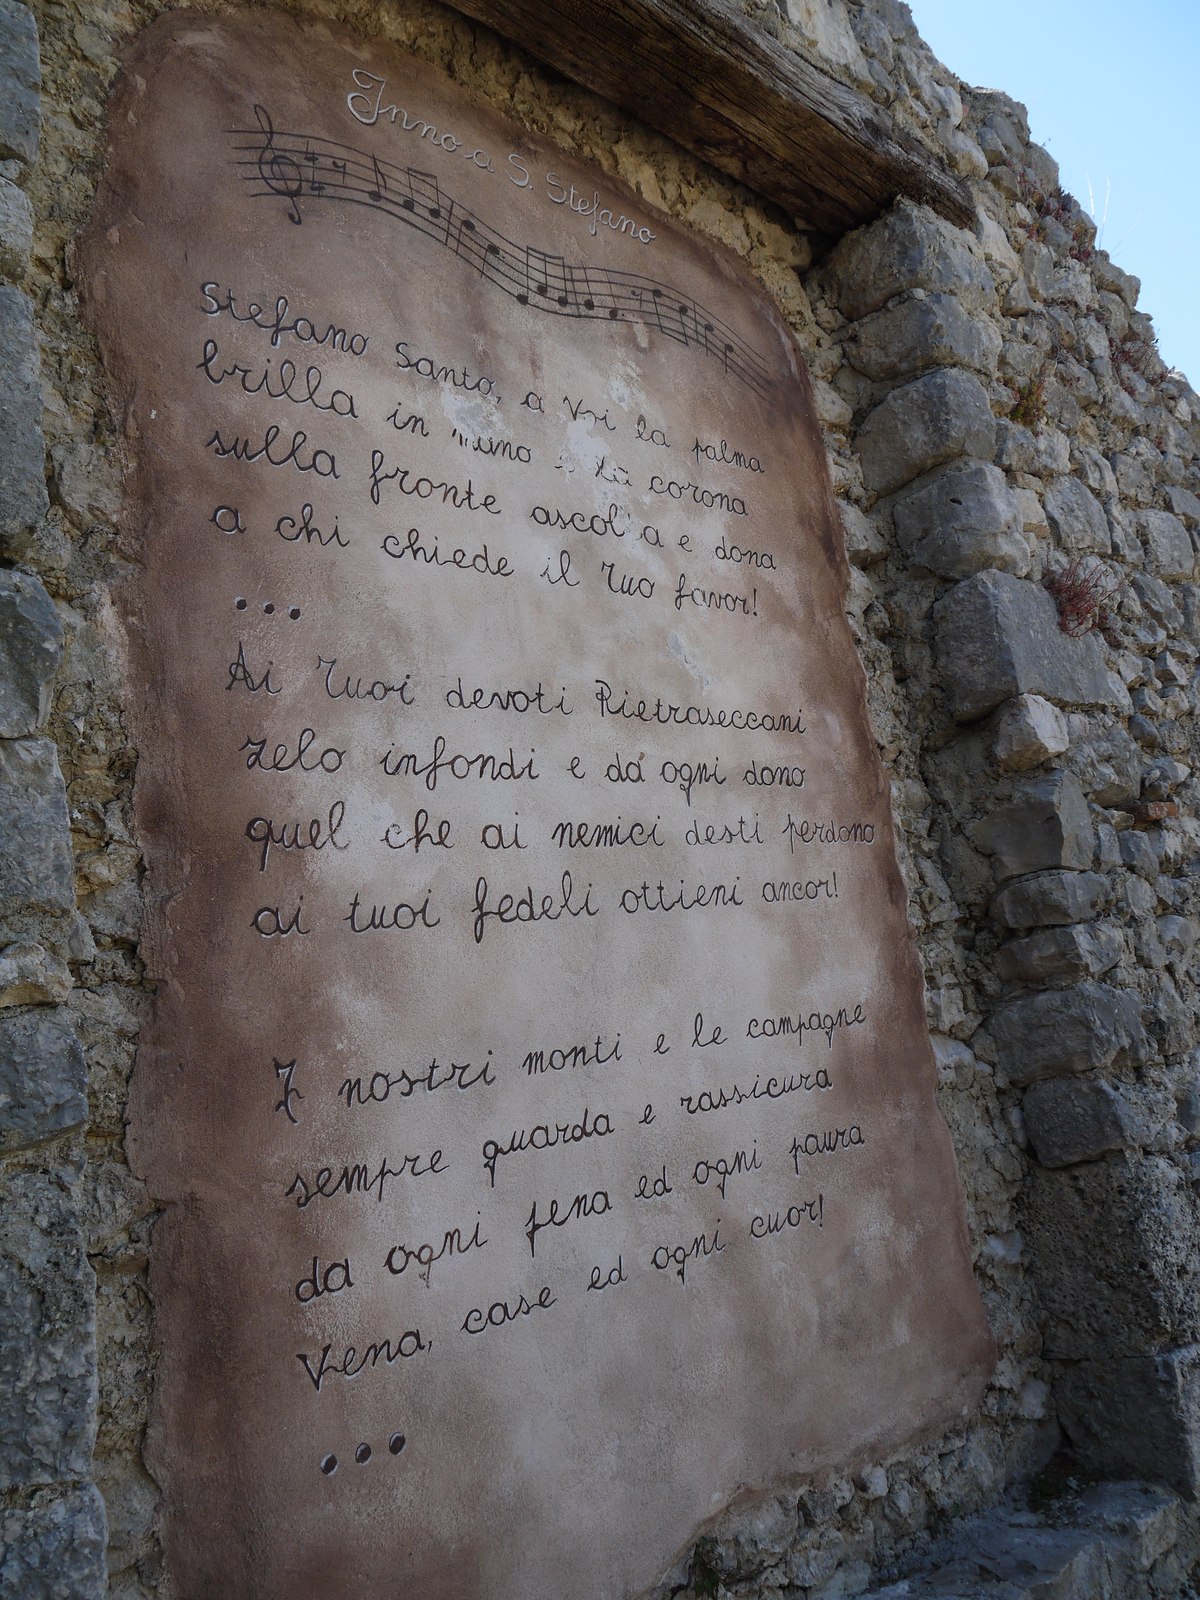 Inno a S. Stefano
Stefano Santo, a Voi la palma
brilla in mano e la corona
sulla fronte ascolta e dona
a chi chiede il Tuo favor!
...
Ai Tuoi devoti Pietraseccani
zelo infondi e dá ogni dono
quel che ai nemici desti perdono
ai tuoi fedeli ottieni ancor!
I nostri monti e le campagne
sempre guarda e rassicura
da ogni pena ed ogni paura
Vena, case ed ogni cuor!
...